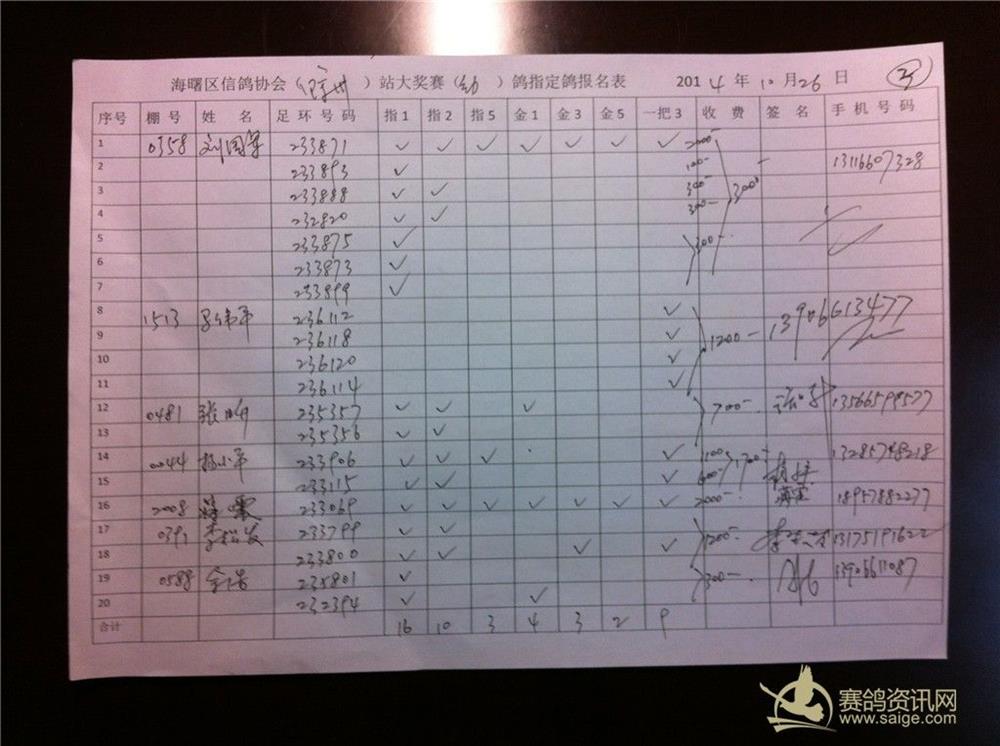 海曙区信鸽协会（ ）站大奖赛（幼）鸽指定鸽报名表 2014年10月26日 3
序号 棚号 姓名 足环号码 指1 指2 指5 金1 金3 金5 一把3 收费 签名 手机号码
1 0358 刘国军 233871 ✓ ✓ ✓ ✓ ✓ ✓ ✓ 2000-
2 233893 ✓ 100- 13116607328
3 233888 ✓ ✓ 300- 3000-
4 232820 ✓ ✓ 300-
5 233875 ✓
6 233873 ✓ 300-
7 233899 ✓
8 1513 236112 ✓
9 236118 ✓ 1200- 13906613477
10 236120 ✓
11 236114 ✓
12 0481 张 235357 ✓ ✓ ✓ 700- 13566599577
13 235356 ✓ ✓
14 0044 杨小平 233906 ✓ ✓ ✓ ✓ 1700- 13285748218
15 233115 ✓ ✓ ✓ 600-
16 2008 233069 ✓ ✓ ✓ ✓ ✓ ✓ ✓ 2000- 18957882277
17 0391 李松发 233799 ✓ ✓ 1200- 13175191622
18 233800 ✓ ✓ ✓ ✓
19 0588 金浩 235801 ✓ 300- 13906611087
20 232394 ✓ ✓
合计 16 10 3 4 3 2 9
赛鸽资讯网
www.saige.com